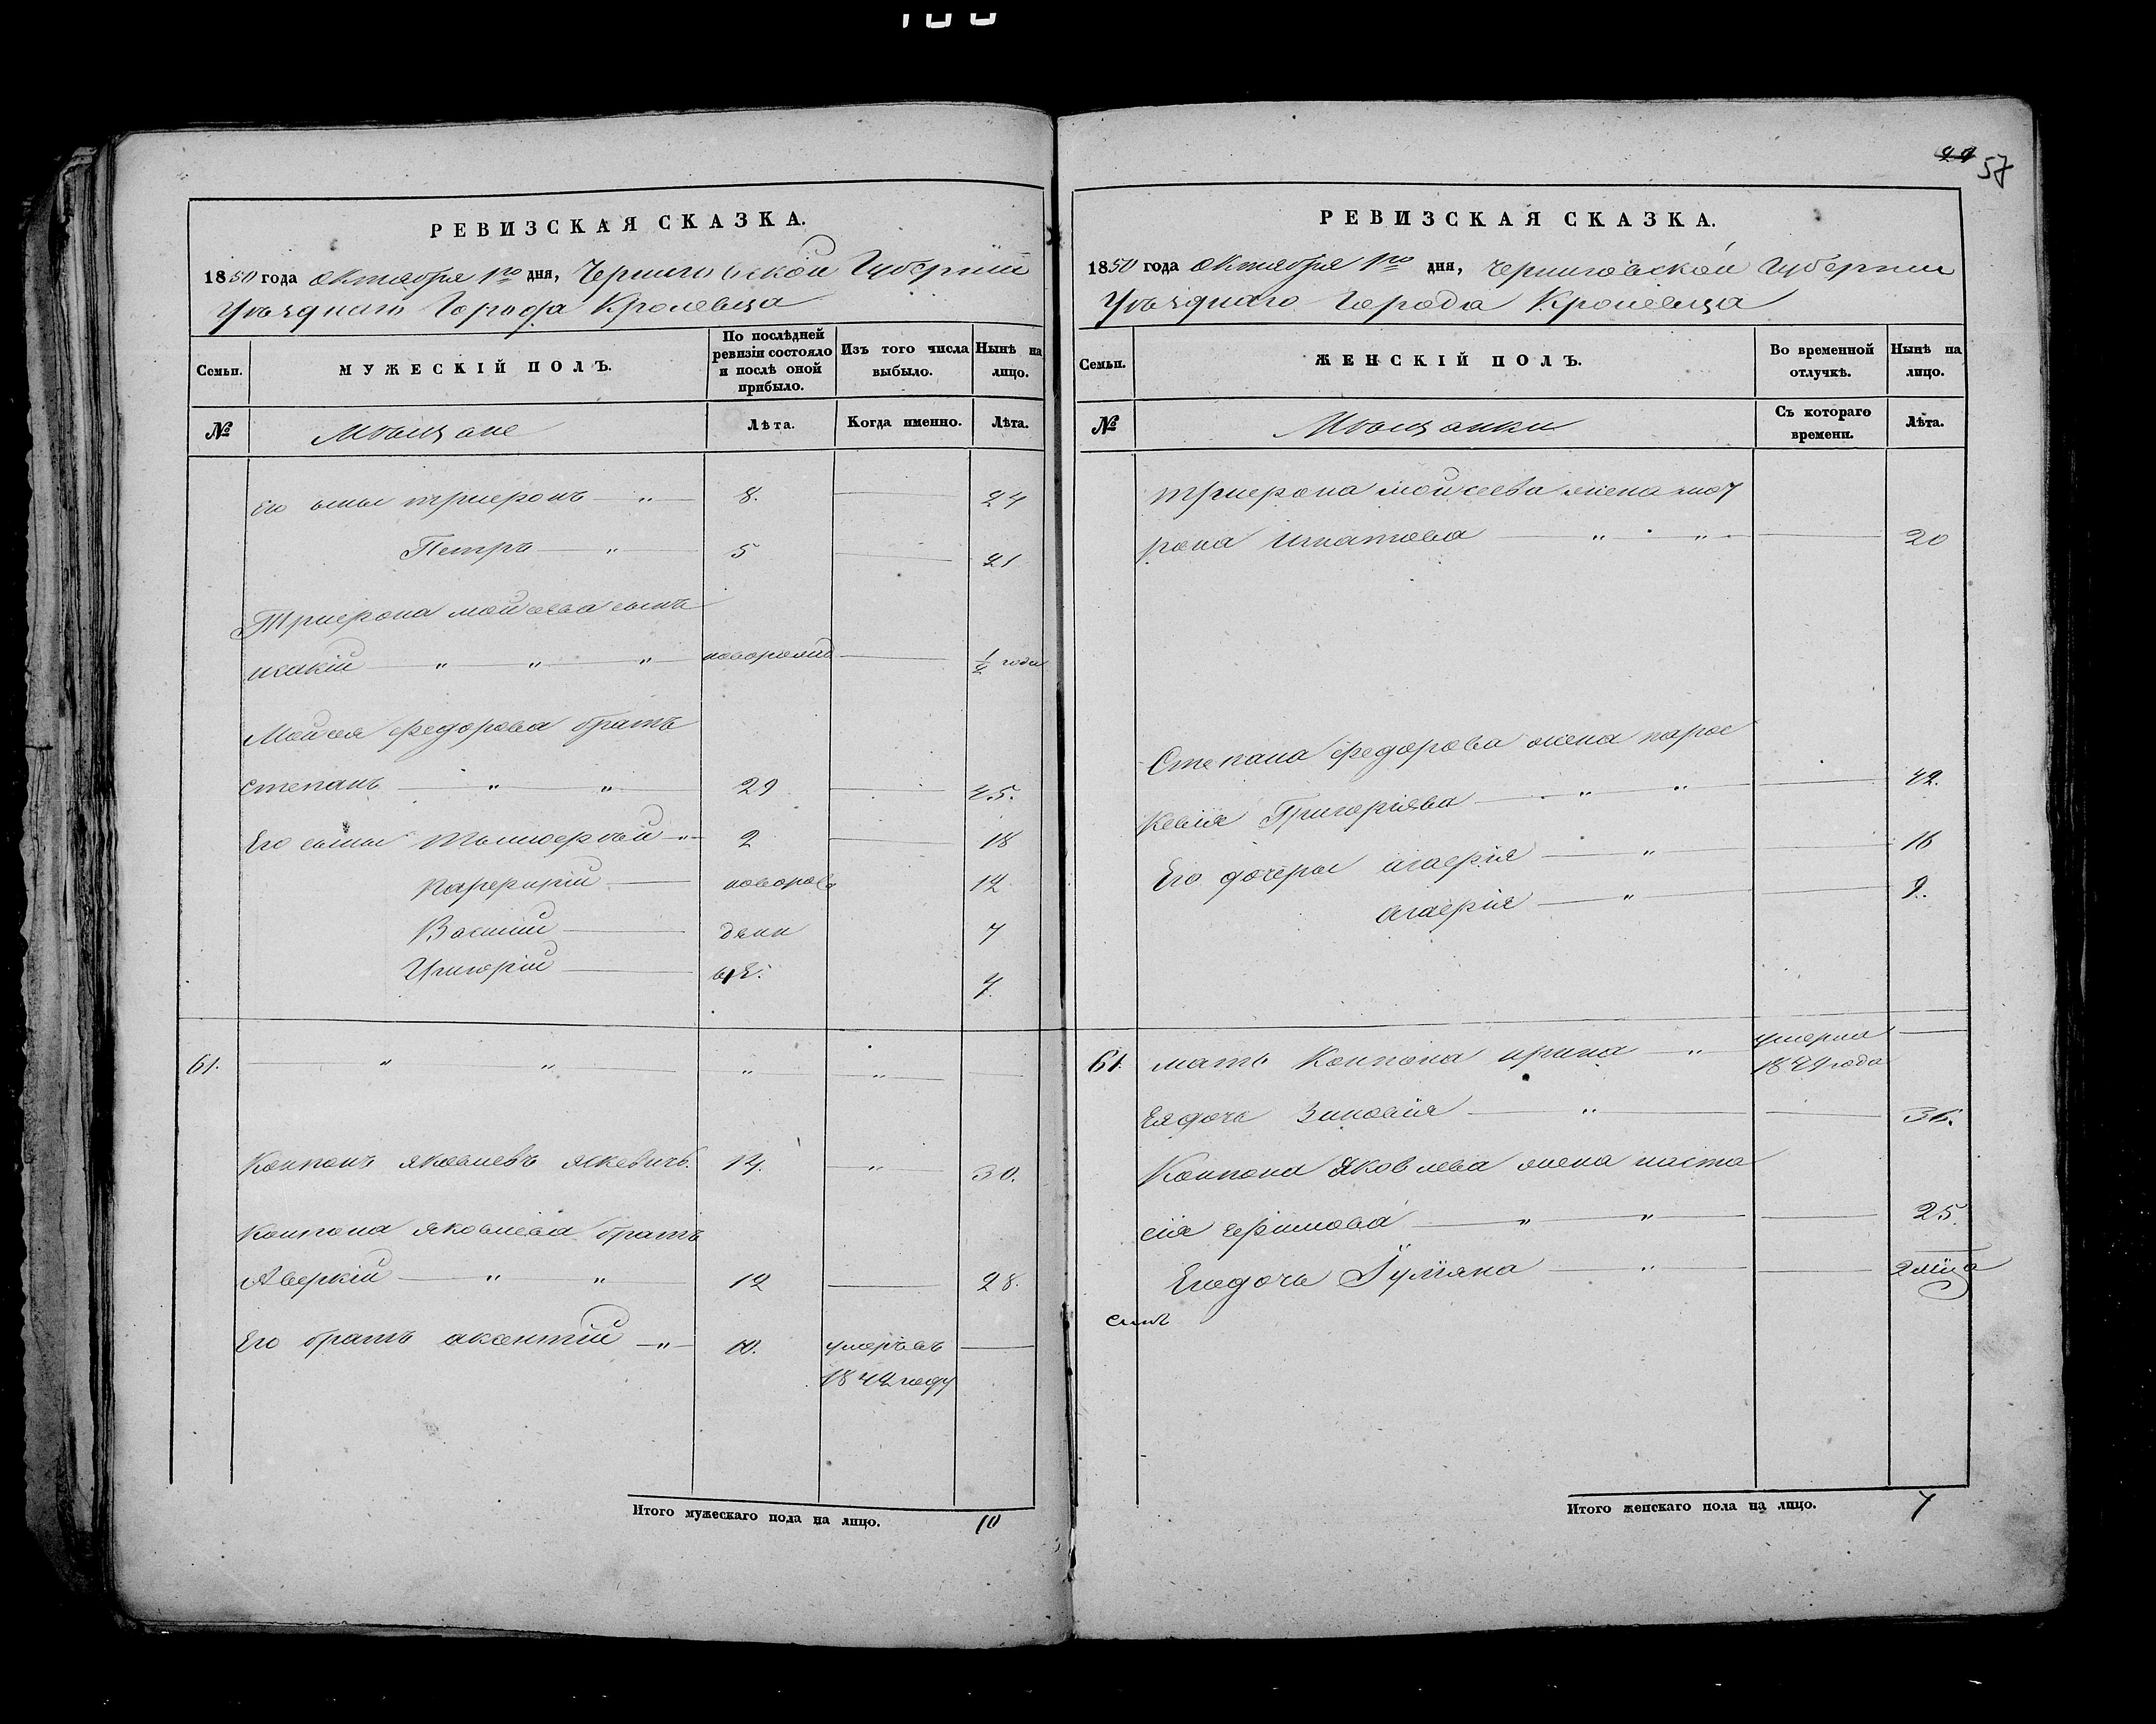 57
РЕВИЗСКАЯ СКАЗКА.
1850 года октября 1го дня, Черниговской Губернии
Уѣзднаго Города Кролевца
Семьи.
МУЖЕСКІЙ ПОЛЪ.
По послѣдней ревизіи состояло и послѣ оной прибыло.
Изъ того числа выбыло.
Нынѣ на лицо.
№
Мѣщане
Лѣта.
Когда именно.
Лѣта.
Его сыны Трифонъ — „ — 8. — 24
Петръ — „ — 5 — 21
Трифона Мойсеева сынъ
новорожд — ½ года
Мойсея Федорова братъ
Степанъ — „ „ 29 — 45.
Его сыны Тимофѣй — „ — 2 — 18
Парфирій — новорож 12
Василий — дены 7
Григорій — 7.
61. — „ „ — „ — „ — —
Контонъ Яковлевъ 14. — „ — 30.
Контона Яковлева братъ
Аверкій — „ „ — 12 — 28.
Его братъ Аксентій — „ — 10. умеръ въ —
1842 году
Итого мужескаго пола на лицо. 10
РЕВИЗСКАЯ СКАЗКА.
1850 года октября 1го дня, Черниговской Губернии
Уѣзднаго Города Кролевца
Семьи.
ЖЕНСКІЙ ПОЛЪ.
Во временной отлучкѣ.
Нынѣ на лицо.
№
Мѣщанки
Съ котораго времени.
Лѣта.
Трифона Мойсеева жена
Игнатова — „ „ — 20
Степана Федорова жена Парос
кевія Григоріева — „ „ — 42.
Его дочеры Агафія — „ — 16
Агафія — „ — 9.
61. мать Контона Ирина — „ — умерла —
1849 года
Ея дочь Зиновія — „ — 36.
Контона Яковлева жена Наста
сія — „ „ — 25.
Его дочь Іуліяна — „ — 2 мѣца
Итого женскаго пола на лицо. 7